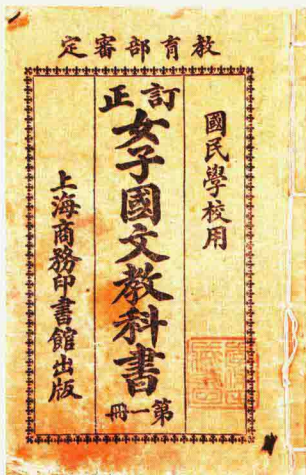 教育部審定
國民學校用
訂正
女子國文教科書
第一冊
上海商務印書館出版